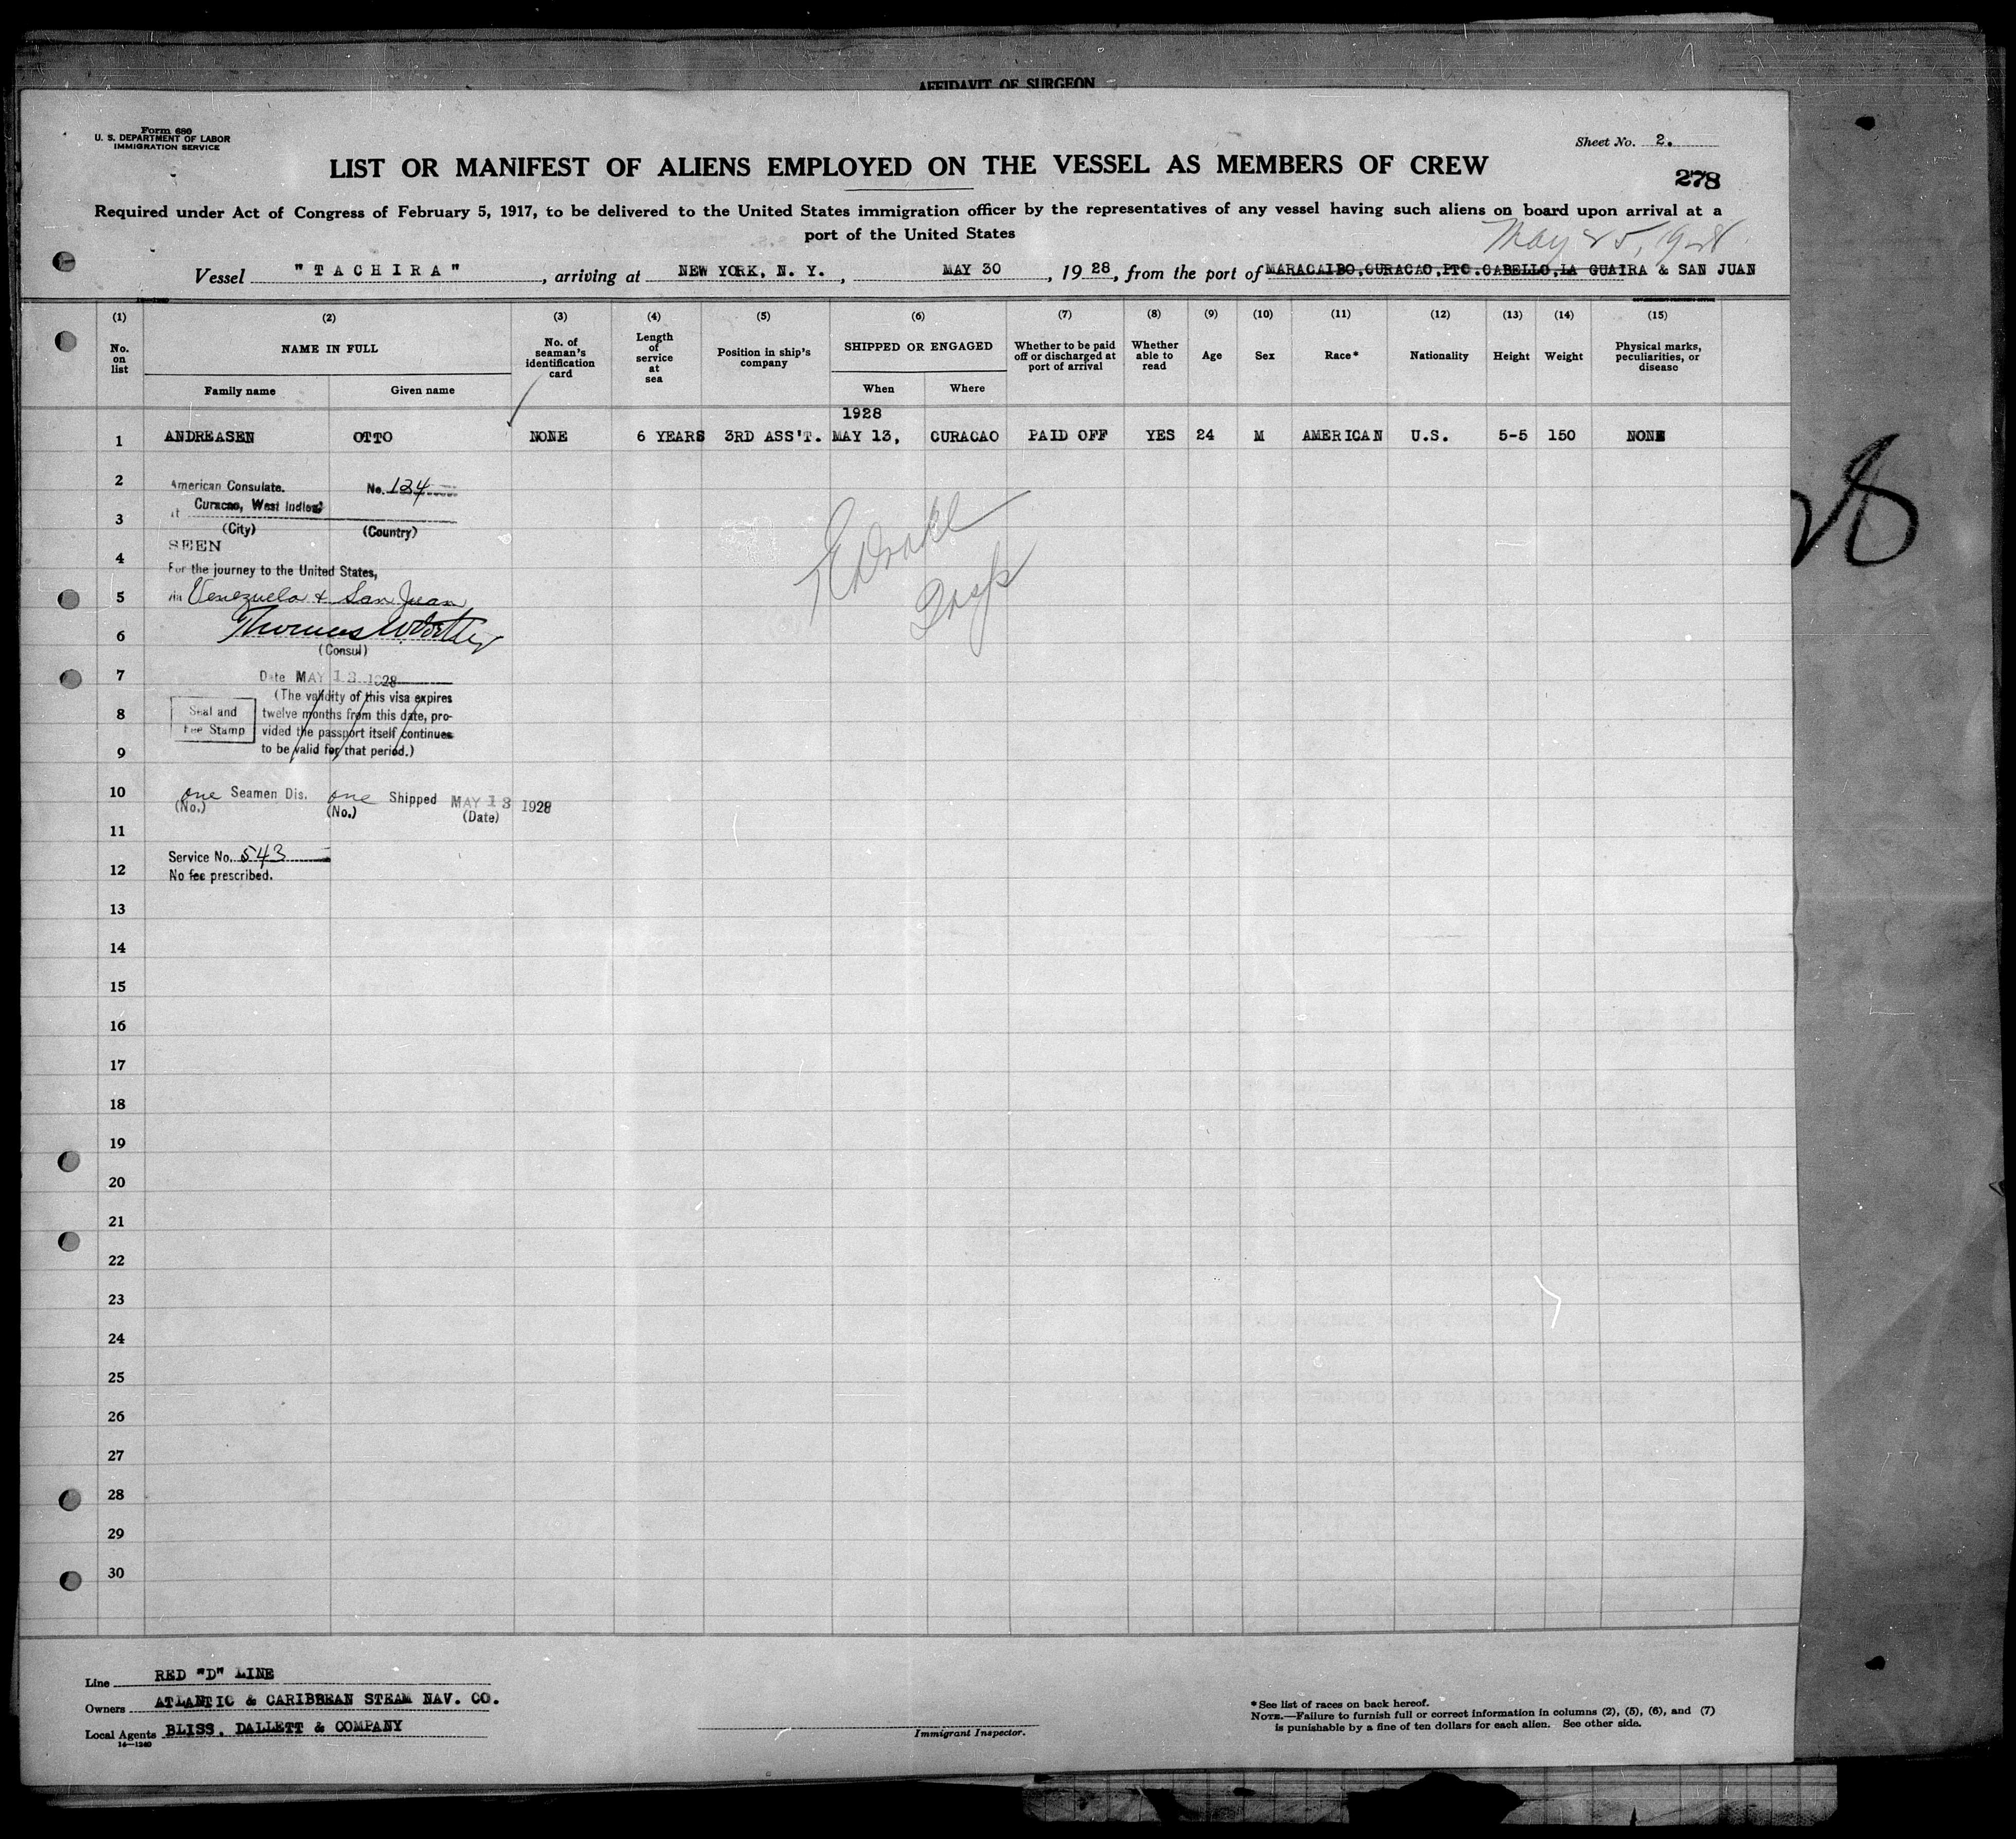 AFFIDAVIT OF SURGEON
Form 680
U. S. DEPARTMENT OF LABOR
IMMIGRATION SERVICE
Sheet No. 2.
LIST OR MANIFEST OF ALIENS EMPLOYED ON THE VESSEL AS MEMBERS OF CREW
278
Required under Act of Congress of February 5, 1917, to be delivered to the United States immigration officer by the representatives of any vessel having such aliens on board upon arrival at a
port of the United States
May 25, 1928
Vessel "TACHIRA", arriving at NEW YORK, N. Y., MAY 30, 1928, from the port of MARACAIBO,CURACAO,PTO.CABELLO,LA GUAIRA & SAN JUAN
(1) (2) (3) (4) (5) (6) (7) (8) (9) (10) (11) (12) (13) (14) (15)
No. on list
NAME IN FULL
Family name
Given name
No. of seaman's identification card
Length of service at sea
Position in ship's company
SHIPPED OR ENGAGED
When
Where
Whether to be paid off or discharged at port of arrival
Whether able to read
Age
Sex
Race*
Nationality
Height
Weight
Physical marks, peculiarities, or disease
1928
1 ANDREASEN OTTO NONE 6 YEARS 3RD ASS'T. MAY 13, CURACAO PAID OFF YES 24 M AMERICAN U.S. 5-5 150 NONE
2
American Consulate. No. 134
3
at Curacao, West Indies
(City) (Country)
SEEN
4
For the journey to the United States,
5
via Venezuela & San Juan
6
Thomas W.
(Consul)
7
Date MAY 13 1928
(The validity of this visa expires
8
Seal and
Fee Stamp
twelve months from this date, pro-
vided the passport itself continues
9
to be valid for that period.)
10
one Seamen Dis. one Shipped MAY 13 1928
(No.) (No.) (Date)
11
Service No. 543
12
No fee prescribed.
Drake
Insp
28
13
14
15
16
17
18
19
20
21
22
23
24
25
26
27
28
29
30
Line RED "D" LINE
Owners ATLANTIC & CARIBBEAN STEAM NAV. CO.
Local Agents BLISS, DALLETT & COMPANY
14—1240
Immigrant Inspector.
*See list of races on back hereof.
NOTE.—Failure to furnish full or correct information in columns (2), (5), (6), and (7)
is punishable by a fine of ten dollars for each alien. See other side.